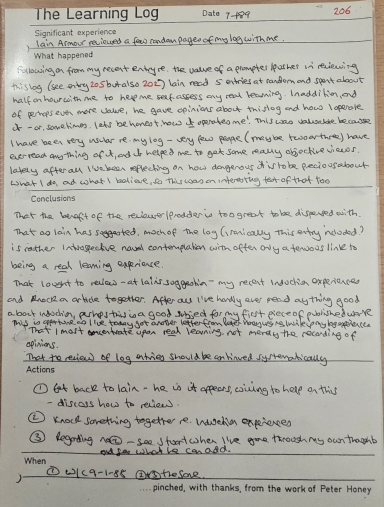 The Learning Log
Date 7-1-89
206
Significant experience
Iain Armour reviewed a few random pages of my log with me.
What happened
Following on from my recent entry re. the value of a prompter/pusher in reviewing
this log (see entry 205 but also 202) Iain read 5 entries at random and spent about
half an hour with me to help me self-assess any real learning. In addition, and
of perhaps even more value, he gave opinions about this log and how I operate
it - or, sometimes, let's be honest how it operates me! This was valuable because
I have been very insular re. my log - very few people (maybe two or three) have
ever read anything of it, and it helped me to get some really objective views.
lately after all I've been reflecting on how dangerous it is to be precious about
what I do, and what I believe, so this was an interesting test of that too
Conclusions
That the benefit of the reviewer/prodder is too great to be dispensed with.
That as Iain has suggested, much of the log (ironically this entry included?)
is rather introspective navel contemplation with often only a tenuous link to
being a real learning experience.
That I ought to review - at Iain's suggestion - my recent Induction experiences
and knock an article together. After all I've hardly ever read anything good
about induction, perhaps this is a good subject for my first piece of published work
This is opportune as I've today got another letter from
That I must concentrate upon real learning, not merely the recording of
opinions.
That to review of log entries should be continued systematically
Actions
① Get back to Iain - he is it appears, willing to help on this
- discuss how to review.
② Knock something together re. Induction experiences
③ Regarding no ② - see when I've gone through my own thoughts
and see what he can add.
When
① W/C 9-1-89 ② + ③ the same
.....pinched, with thanks, from the work of Peter Honey